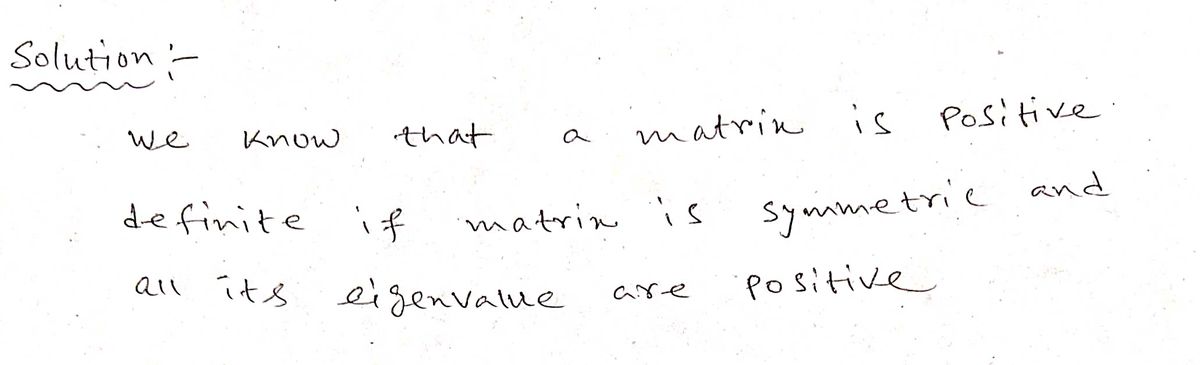 Solution :-
we know that a matrix is positive
definite if matrix is symmetric and
all its eigenvalue are positive